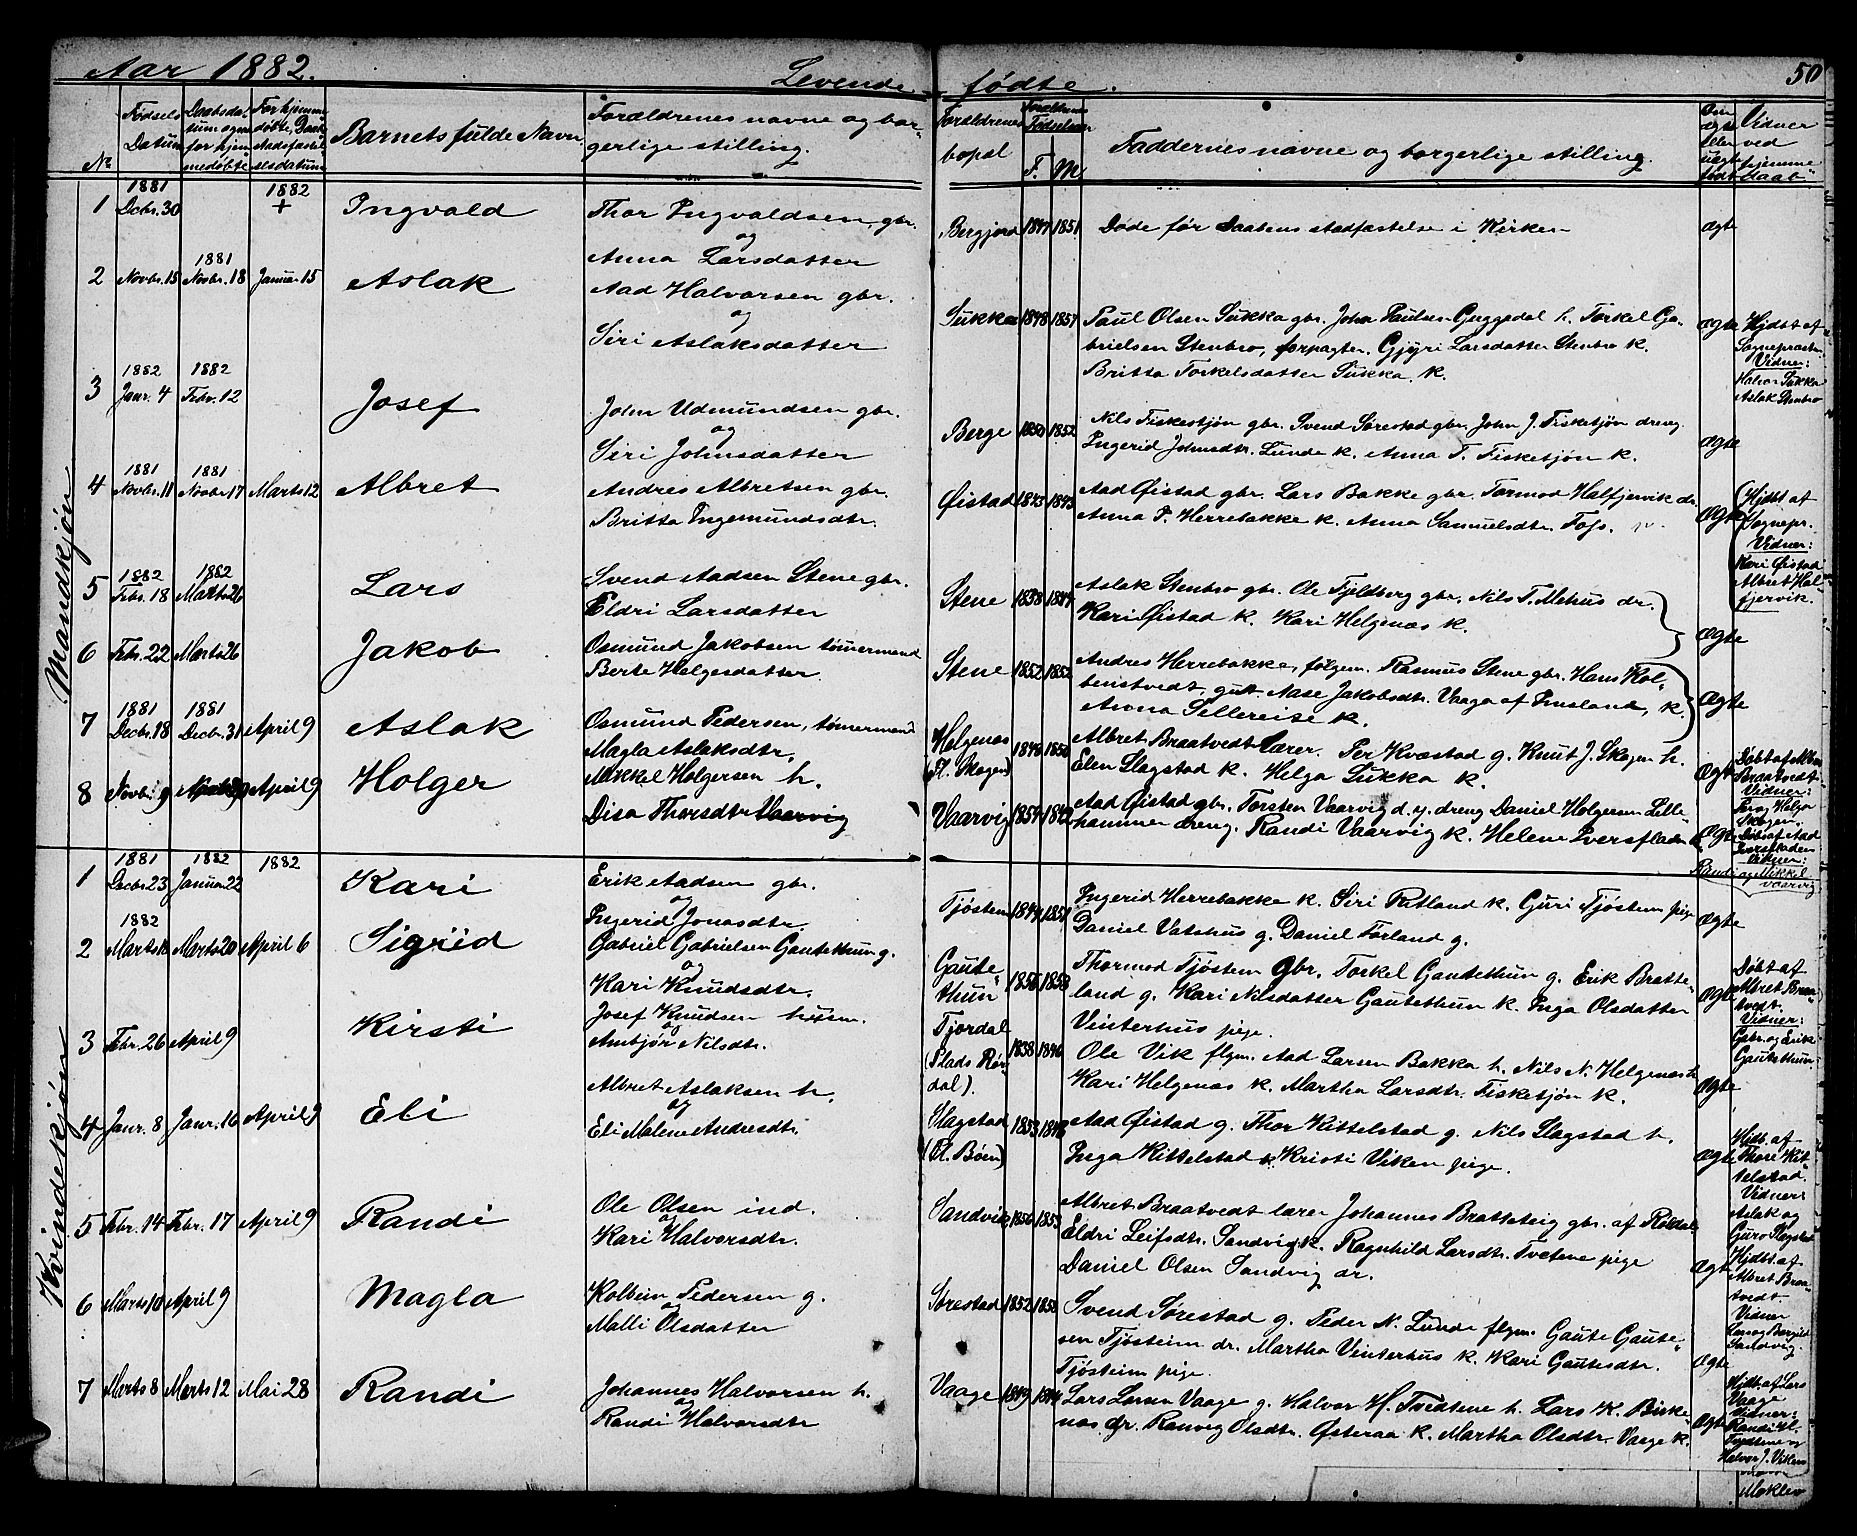 Aar 1882. Levende fødte. 50
No. Fødsels Datum Barnets fulde Navn Forældrenes navne og bor-
gerlige stilling. Forældrenes bopæl F. M. Faddernes navne og borgerlige stilling. Vidner ved hjemme daab
Mandkjøn
1 1881 Decbr. 30 1882 + Ingvald Thor Ingvaldsen, gbr.
og
Anna Larsdatter Bergjord 1851 Døde før Daabens stadfæstelse i Kirken ægte
2 Novbr. 15 1881 Novbr. 18 Januar 15 Aslak Aad Halvorsen gbr.
og
Siri Aslaksdatter Sukka 1848 Paul Olsen Sukka gbr. John Paulsen h. Torkel Ga-
brielsen Stenbro, forpagter. Gjyri Larsdatter Stenbro k.
Britta Torkelsdatter Sukka. k. ægte Hjdbt af
Vidner:
Halvor Sukka
Aslak Stenbro
3 1882 Janr. 4 1882 Febr. 12 Josef John Udmundsen gbr.
og
Siri Johnsdatter Berge 1850 1852 Nils Fiskestjøn gbr. Svend Sørestad gbr. John J. Fisketjøn dreng.
Ingerid Johnsdtr. Lunde k. Anna T. Fisketjøn k. ægte
4 1881 Novbr. 11 1881 Novbr. 17 Marts 12 Albret Andres Albretsen gbr.
Britta Ingemundsdtr. Øistad 1843 1843 Aad Øistad gbr. Lars Bakke gbr. Tormod Halfjervik dr.
Anna P. Herrebakke k. Anna Samuelsdtr. Ægte Hjdbt af
Sognepr.
Vidner:
Kari Øistad
Albret Hal-
fjervik.
5 1882 Febr. 18 1882 Marts 26 Lars Svend Aadsen Stene gbr.
Eldri Larsdatter Stene 1838 Aslak Stenbro gbr. Ole Fjeldberg gbr. Nils T. Mehus dr.
Kari Øistad k. Kari Helgenæs k. Ægte
6 Febr. 22 Marts 26 Jakob Osmund Jakobsen tømmermand
Berte Helgesdatter Stene 1852 1852 Andres Herrebakke, følgem. Rasmus Stene gbr. Hans Kol-
benstvedt, gutt. Aase Jakobsdtr. Vaaga af Imsland, k.
Anna k. Ægte
7 1881 Decbr. 18 1881 Decbr. 31 April 9 Aslak Osmund Pedersen, tømmermand
Magla Aslaksdtr. Helgenæs
(Pl. Skogen) Albret Braatvedt lærer. Per Kvæstad g. Knut J. Skogen h.
Elen Slagstad k. Helga Sukka k. Ægte Vidner:
8 Novbr. 9 April 9 Holger Mikkel Holgersen h.
Disa Thorsdtr. Vaarvig Vaarvig Aad Øistad gbr. Torsten Vaarvig d. y. dreng Daniel Holgersen Lille-
hammer dreng. Randi Vaarvig k. Helene Iversfladen Ægte Vidner:
Randi og Mikkel
Vaarvig
Kvindekjøn
1 1881 Decbr. 23 1882 Januar 22 1882 Kari Erik Aadsen gbr.
og
Ingerid Jonasdtr. Tjøstem Ingerid Herrebakke k. Siri Rutland k. Guri Tjøstem pige
Daniel Vatshus g. Daniel Førland g. Ægte
2 1882 Marts 18 Marts 20 April 6 Sigrid Gabriel Gabrielsen Gautethun g.
og
Kari Knudsdtr. Gaute-
thun Thormod Tjøstem gbr. Torkel Gautethun g. Erik Bratte-
land g. Kari Nilsdatter Gautethun k. Inga Olsdatter
Vinterhus pige. Ægte Døbt af
Albret Braa-
tvedt.
Vidner:
Gabr. og Erik
Gautethun.
3 Febr. 26 April 9 Kirsti Josef Knudsen husm.
og
Ambjør Nilsdtr. Tjordal
(Plads Rør-
dal). 1838 1846 Ole Vik flgm. Aad Larsen Bakka h. Nils N. Helgenæs h.
Kari Helgenæs k. Martha Larsdtr. Fisketjøn k. Ægte
4 Janr. 8 Janr. 16 April 9 Eli Albret Aslaksen h.
og
Eli Malene Andresdtr. Slagstad
(Pl. Bøen) 1853 1848 Aad Øistad g. Thor Kittelstad g. Nils Slagstad h.
Inga Kittelstad k. Kristi Viken pige. Ægte Hjdt. af
Thore Kit-
telstad.
Vidner:
Aslak og
Guro Slagstad
5 Febr. 14 Febr. 17 April 9 Randi Ole Olsen ind.
og
Kari Halvorsdtr. Sandvig 1856 1853 Albret Braatvedt lærer Johannes Bratteteig gbr. af Røldal
Eldri Leifsdtr. Sandvig k. Ragnhild Larsdtr. Tvetene pige
Daniel Olsen Sandvig dr. Ægte Hjdbt. af
Albret Braa-
tvedt
Vidner
Sandvig.
6 Marts 10 April 9 Magla Kolbein Pedersen g.
og
Malli Olsdatter Sørestad 1852 Svend Sørestad g. Peder N. Lunde flgm. Gaute Gaute-
sen Tjøsteim dr. Martha Vinterhus k. Kari Gautesdtr.
Tjøsteim pige. Ægte
7 Marts 8 Marts 12 Mai 28 Randi Johannes Halvorsen h.
og
Randi Halvorsdtr Vaage Lars Larsen Vaage g. Halvor H. Tvedtene h. Lars K. Birke-
næs gr. Ranveg Olsdtr. Østeraa k. Martha Olsdtr. Vaage k. Ægte Hjdt. af Lars
Vaage
Vidner:
Randi H.
Tvedtene og
Halvor J. Viken